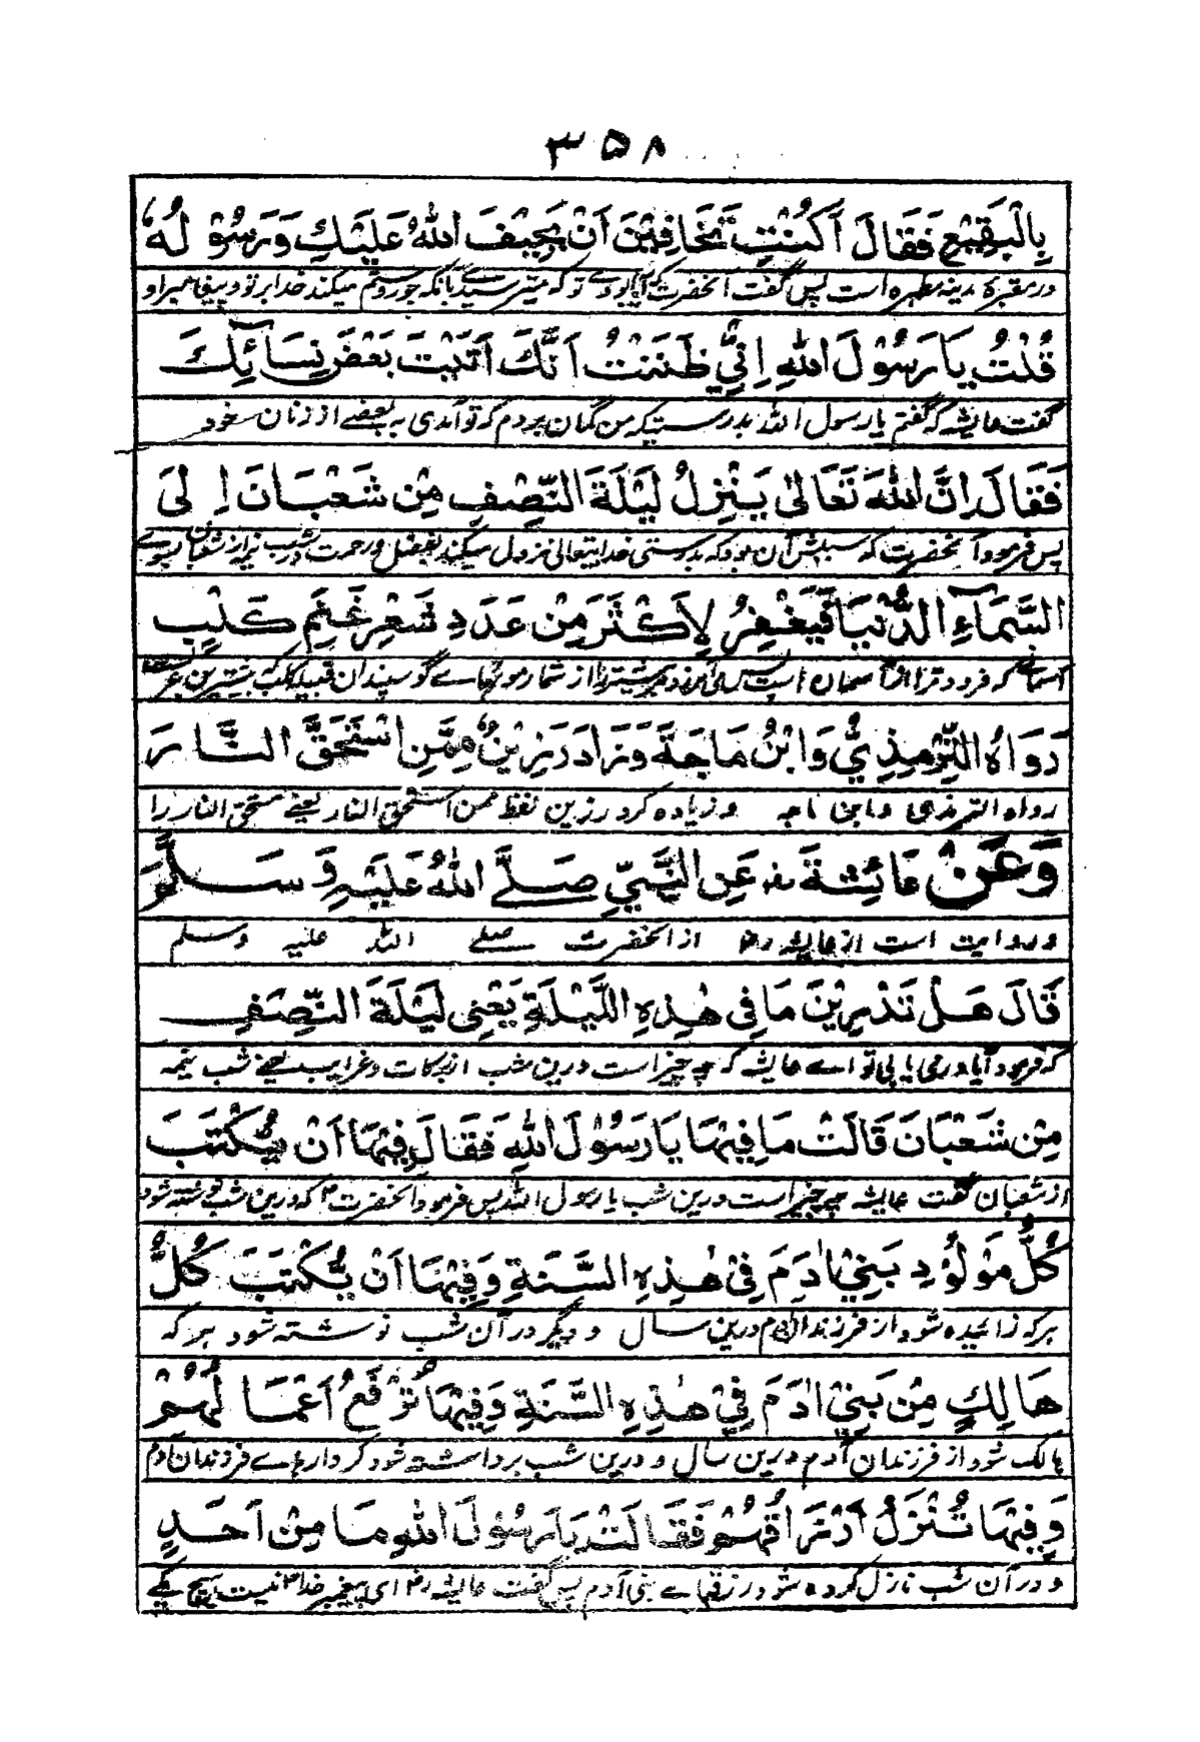 ۳۵۸
بِالْبَقِيْعِ فَقَالَ اَكُنْتِ تَخَافِيْنَ اَنْ يَحِيْفَ اللهُ عَلَيْكِ وَرَسُوْلُهُ
در مقبرهٔ مدینه مطهره است پس گفت آنحضرت آیا بودے تو که میترسیدے بآنکه جور و ستم میکند خدا بر تو و پیغامبر او
قُلْتُ يَا رَسُوْلَ اللهِ اِنِّيْ ظَنَنْتُ اَنَّكَ اَتَيْتَ بَعْضَ نِسَآئِكَ
گفت عایشه که گفتم یا رسول الله بدرستیکه من گمان بردم که تو آمدی به بعضے از زنان خود
فَقَالَ اِنَّ اللهَ تَعَالٰى يَنْزِلُ لَيْلَةَ النِّصْفِ مِنْ شَعْبَانَ اِلَى
پس فرمود آنحضرت که سببش آن بود که بدرستی خدایتعالی نزول میکند بفضل و رحمت در شب نیمه از شعبان بسوے
السَّمَآءِ الدُّنْيَا فَيَغْفِرُ لِاَكْثَرَ مِنْ عَدَدِ شَعْرِ غَنَمِ كَلْبٍ
که فرودترازین آسمان است پس می آمرزد مر بیشتر را از شمار مویهاے گوسپندان قبیله کلب
رَوَاهُ التِّرْمِذِيُّ وَابْنُ مَاجَةَ وَزَادَ رَزِيْنٌ مِمَّنِ اسْتَحَقَّ النَّارَ
رواه الترمذی وابن ماجه و زیاده کرد رزین لفظ ممن استحق النار یعنے مستحق النار را
وَعَنْ عَائِشَةَ رض عَنِ النَّبِيِّ صَلَّے اللهُ عَلَيْهِ وَسَلَّمَ
و روایت است از عایشه رض از آنحضرت صلے الله علیه وسلم
قَالَ هَلْ تَدْرِيْنَ مَا فِيْ هٰذِهِ اللَّيْلَةِ يَعْنِيْ لَيْلَةَ النِّصْفِ
که فرمود آیا درمی یابی تو اے عایشه که چه چیز است درین شب از برکات و غرایب یعنے شب نیمه
مِنْ شَعْبَانَ قَالَتْ مَا فِيْهَا يَا رَسُوْلَ اللهِ فَقَالَ فِيْهَا اَنْ يُكْتَبَ
از شعبان گفت عایشه چه چیز است درین شب یا رسول الله پس فرمود آنحضرت ص که درین شب نوشته شود
كُلُّ مَوْلُوْدِ بَنِيْ اٰدَمَ فِيْ هٰذِهِ السَّنَةِ وَفِيْهَا اَنْ يُكْتَبَ كُلُّ
هر که زائیده شود از فرزندان آدم درین سال و دیگر در آن شب نوشته شود هر که
هَالِكٍ مِنْ بَنِيْ اٰدَمَ فِيْ هٰذِهِ السَّنَةِ وَفِيْهَا تُرْفَعُ اَعْمَالُهُمْ
هالک شود از فرزندان آدم درین سال و درین شب برداشته شود کردارهاے فرزندان آدم
وَفِيْهَا تُنْزَلُ اَرْزَاقُهُمْ فَقَالَتْ يَا رَسُوْلَ اللهِ مَا مِنْ اَحَدٍ
و در آن شب نازل کرده شود رزقهاے بنی آدم پس گفت عایشه رض ای پیغمبر خدا نیست هیچ یکے